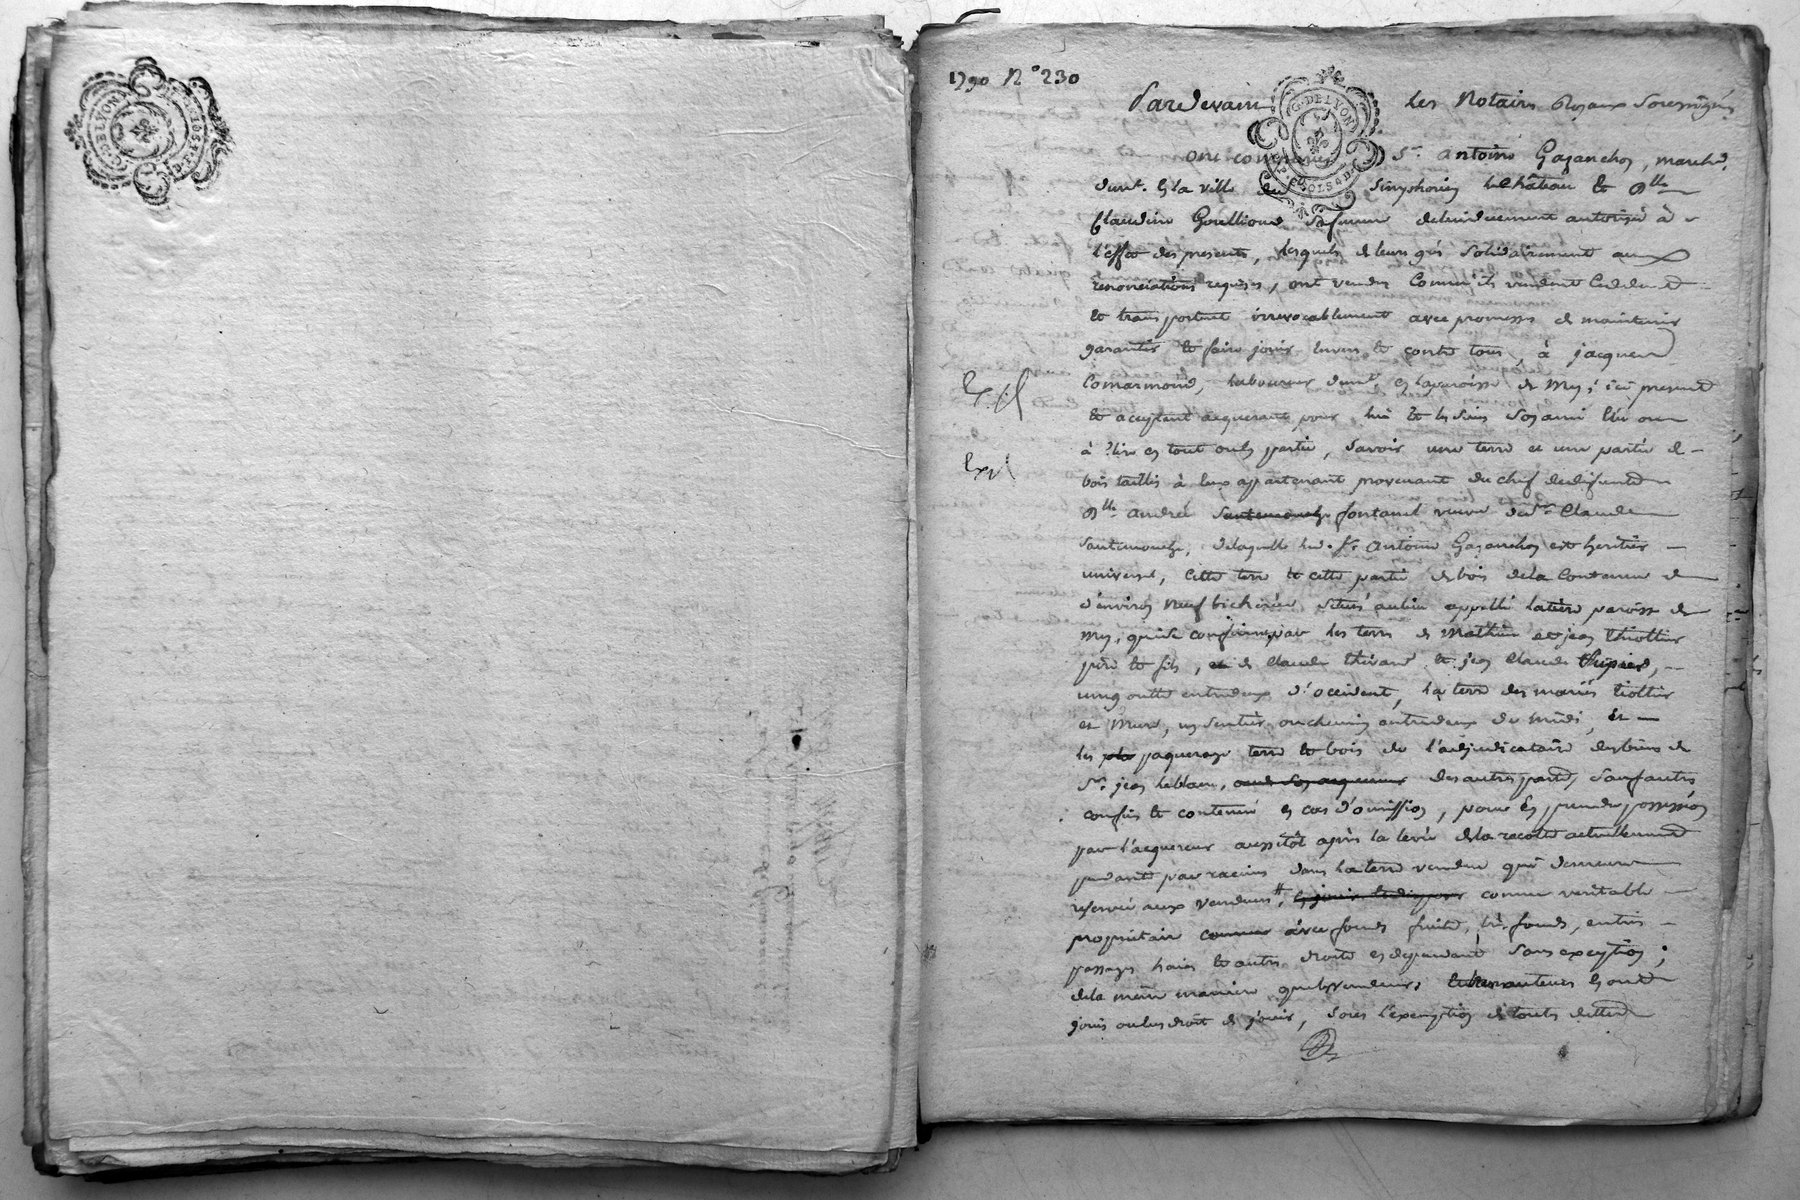 G. DE LYON
1790 N° 230
G. DE LYON
2. SOLS 4 D
Pardevant les Notaires Royaux soussignés
ont comparu Sr. Antoine Gaganchon, march.d
demt. en la ville de Simphorien le Château et Dlle
Claudine Goullioud sa femme deluiduement autorisée à
l'effet des presents, lesquels de leurs grés solidairement aux
renonciations requises, ont vendus comme ils vendent cedent
et transportent irrevocablement avec promesse de maintenir
garantir et faire jouir envers et contre tous, à jacques
Comarmond, laboureur demt. en la paroisse de Mey, ici present
et acceptant acquereur pour lui et les siens son ami élu ou
à élire en tout ou en partie, savoir une terre et une partie de
bois taillis à eux appartenant provenant du chef de defunte
Dlle andrée fontanel veuve de Sr. Claude
Santemouche, delaquelle led. Sr. Antoine Gaganchon est heritier
universel, cette terre et cette partie de bois dela contenue de
d'environ neuf bicherées situés au lieu appellé paroisse de
Mey, qui se confinent par les terres de Mathieu et jean thiollier
père et fils, et de Claude thivard et jean Claude
entredeux d'occident, la terre des mariés tiollier
et Mure, un sentier ou chemin entredeux de midi, et
les paquerage terre et bois de l'adjudicataire des biens de
Sr. jean leblanc, des autres parts, sauf autres
confins et contenue en cas d'omission, pour en prendre possession
par l'acquereur aussitôt après la levée dela recolte actuellement
pendante par racines dans la terre vendue qui demeure
reservée aux vendeurs, comme veritable
proprietaire avec fonds, fruits, très fonds, entrées
passages haies et autres droits en dependant sans exception;
dela même maniere que les vendeurs et leurs auteurs en ont
jouis ou eu droit de jouir, sous l'exemption de toutes dettes